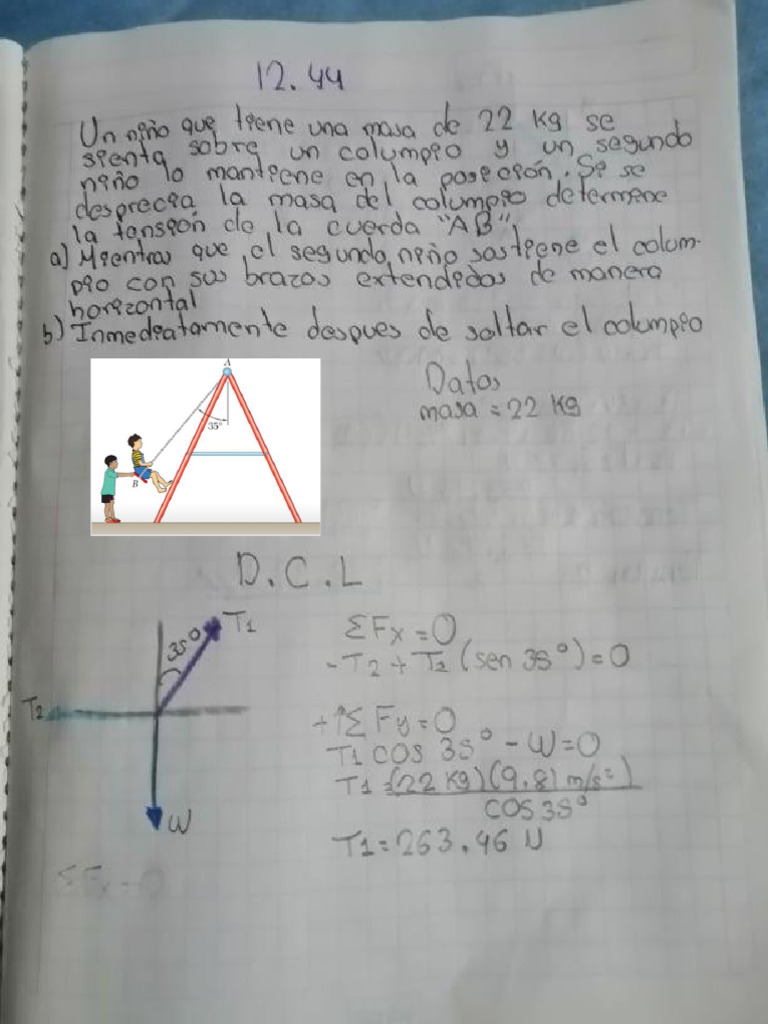 12.44
Un niño que tiene una masa de 22 kg se
sienta sobre un columpio y un segundo
niño lo mantiene en la posición. Si se
desprecia la masa del columpio determine
la tensión de la cuerda "AB"
a) Mientras que el segundo niño sostiene el colum-
pio con sus brazos extendidos de manera
horizontal
b) Inmediatamente despues de soltar el columpio
A
35°
B
Datos
masa = 22 kg
D.C.L
T1
35°
T2
W
ΣFx = 0
-T2 + T2 (sen 35°) = 0
+↑ΣFy = 0
T1 cos 35° - W = 0
T1 = (22 kg)(9.81 m/s²)
cos 35°
T1 = 263.46 N
ΣFx = 0